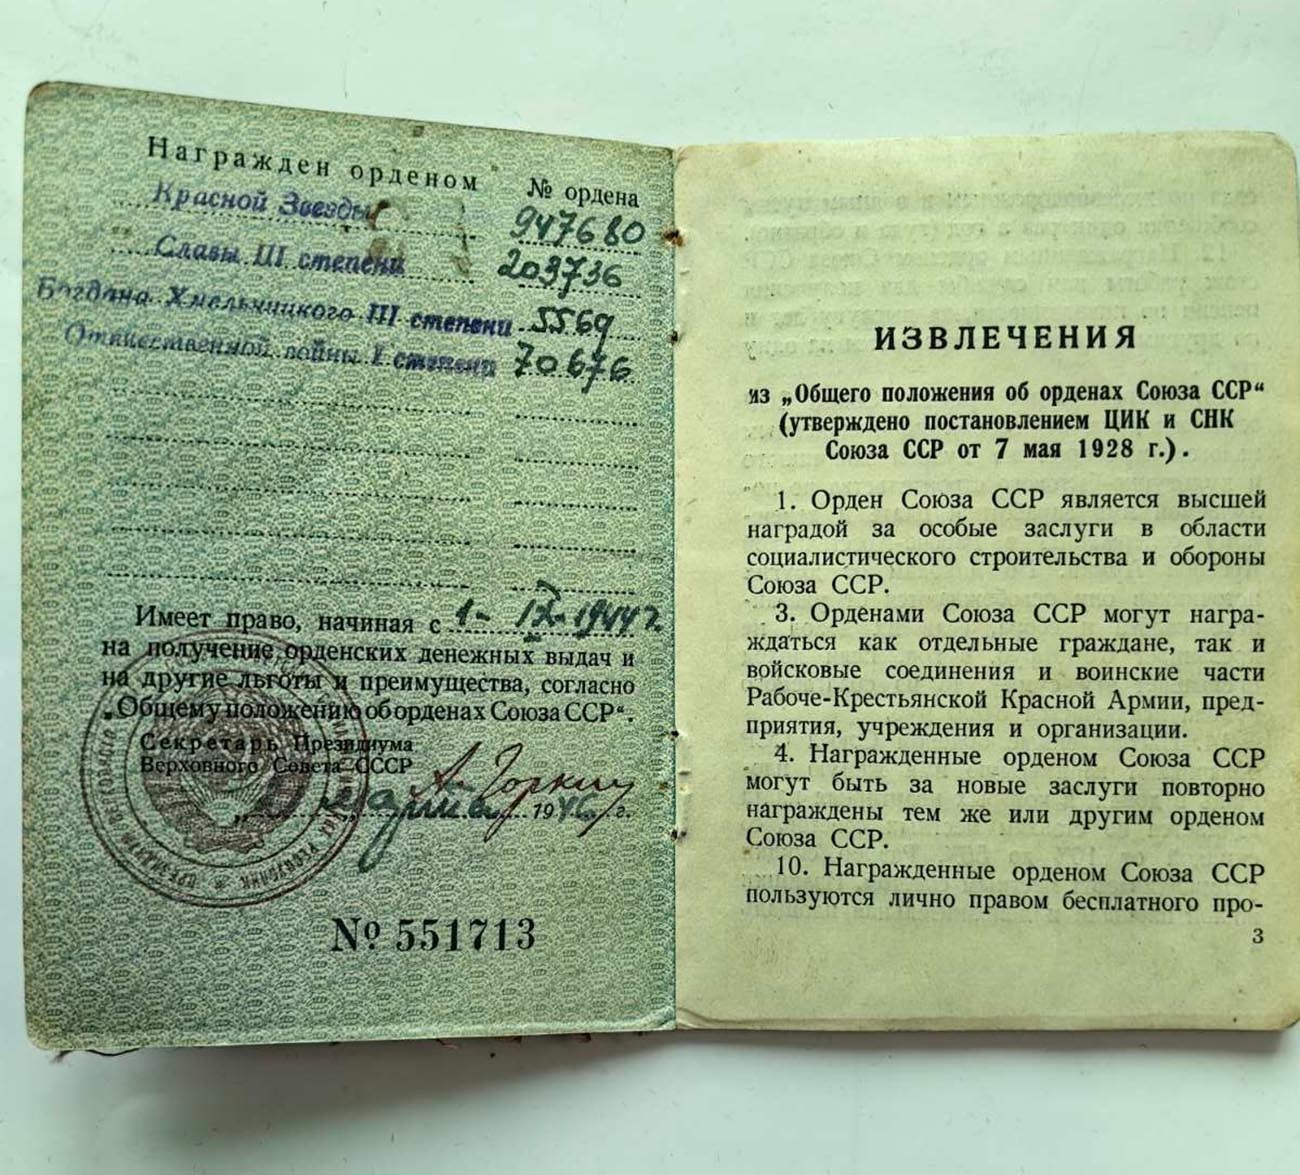 Награжден орденом
№ ордена
Красной Звезды
947680
Славы III степени
203736
Богдана Хмельницкого III степени
5569
Отечественной войны I степени
70676
Имеет право, начиная с 1-IX-1944 г.
на получение орденских денежных выдач и
на другие льготы и преимущества, согласно
„Общему положению об орденах Союза ССР“.
Секретарь Президиума
Верховного Совета СССР
А. Горкин
марта 1946 г.
№ 551713
ИЗВЛЕЧЕНИЯ
из „Общего положения об орденах Союза ССР“
(утверждено постановлением ЦИК и СНК
Союза ССР от 7 мая 1928 г.).
1. Орден Союза ССР является высшей
наградой за особые заслуги в области
социалистического строительства и обороны
Союза ССР.
3. Орденами Союза ССР могут награ-
ждаться как отдельные граждане, так и
войсковые соединения и воинские части
Рабоче-Крестьянской Красной Армии, пред-
приятия, учреждения и организации.
4. Награжденные орденом Союза ССР
могут быть за новые заслуги повторно
награждены тем же или другим орденом
Союза ССР.
10. Награжденные орденом Союза ССР
пользуются лично правом бесплатного про-
3